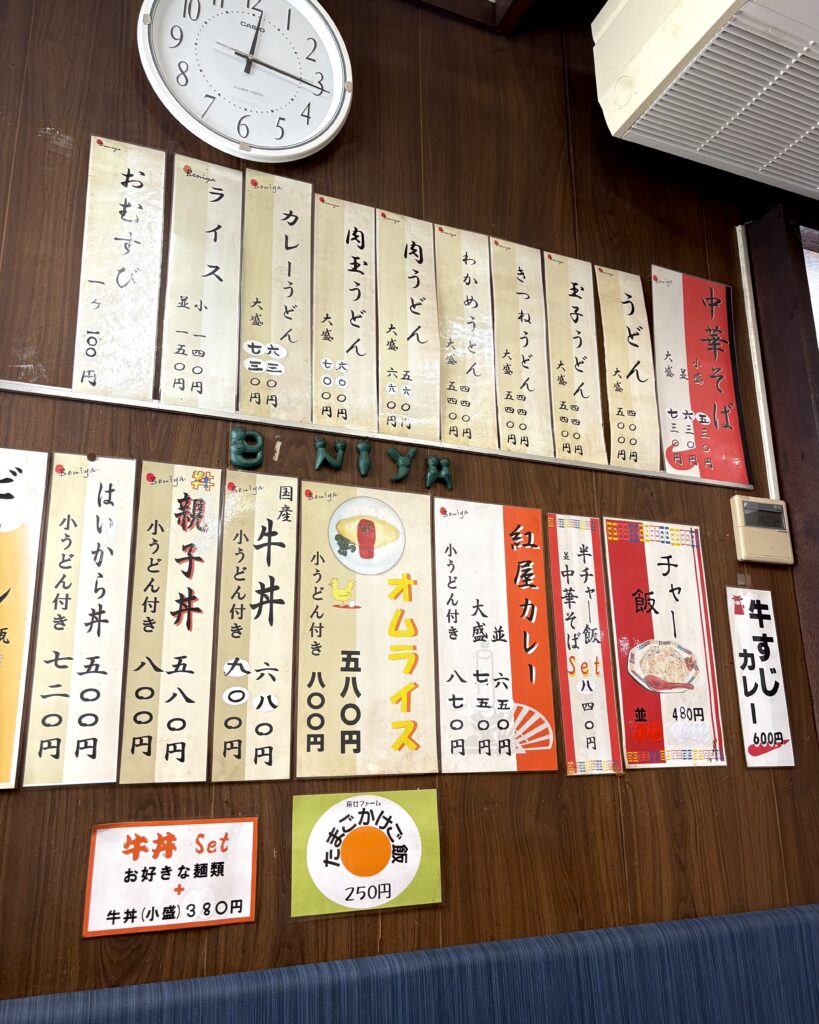 CASIO
12
1
2
3
4
5
6
7
8
9
10
Beniya
中華そば
小盛 五三〇円
並 六三〇円
大盛 七三〇円
Beniya
うどん
五〇〇円
大盛 六〇〇円
Beniya
玉子うどん
四四〇円
大盛 五四〇円
Beniya
きつねうどん
四四〇円
大盛 五四〇円
Beniya
わかめうどん
四四〇円
大盛 五四〇円
Beniya
肉うどん
五六〇円
大盛 六六〇円
Beniya
肉玉うどん
六〇〇円
大盛 七〇〇円
Beniya
カレーうどん
六三〇円
大盛 七三〇円
Beniya
ライス
小 一四〇円
並 一五〇円
Beniya
おむすび
一ヶ 100円
B NIYA
牛すじ
カレー
600円
チャー飯
並 480円
半チャー飯
並中華そば
Set 八四〇円
Beniya
紅屋カレー
並 六五〇円
大盛 七五〇円
小うどん付き 八七〇円
Beniya
オムライス
五八〇円
小うどん付き 八〇〇円
Beniya
国産
牛丼 六八〇円
小うどん付き 九〇〇円
Beniya
親子丼 五八〇円
小うどん付き 八〇〇円
Beniya
はいから丼 五〇〇円
小うどん付き 七二〇円
牛丼 Set
お好きな麺類
+
牛丼(小盛)380円
たまごかけご飯
250円